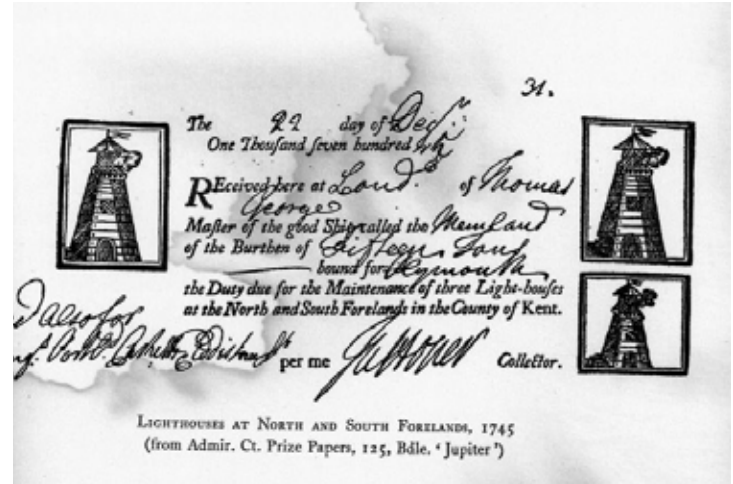 31.
The 22 day of Decr.
One Thousand seven hundred
REceived here at Lond. of Thomas
George
Master of the good Ship called the
of the Burthen of Fifteen Tons
bound for Plymouth
the Duty due for the Maintenance of three Light-houses
at the North and South Forelands in the County of Kent.
d also for
per me Collector.
LIGHTHOUSES AT NORTH AND SOUTH FORELANDS, 1745
(from Admir. Ct. Prize Papers, 125, Bdle. ‘Jupiter’)